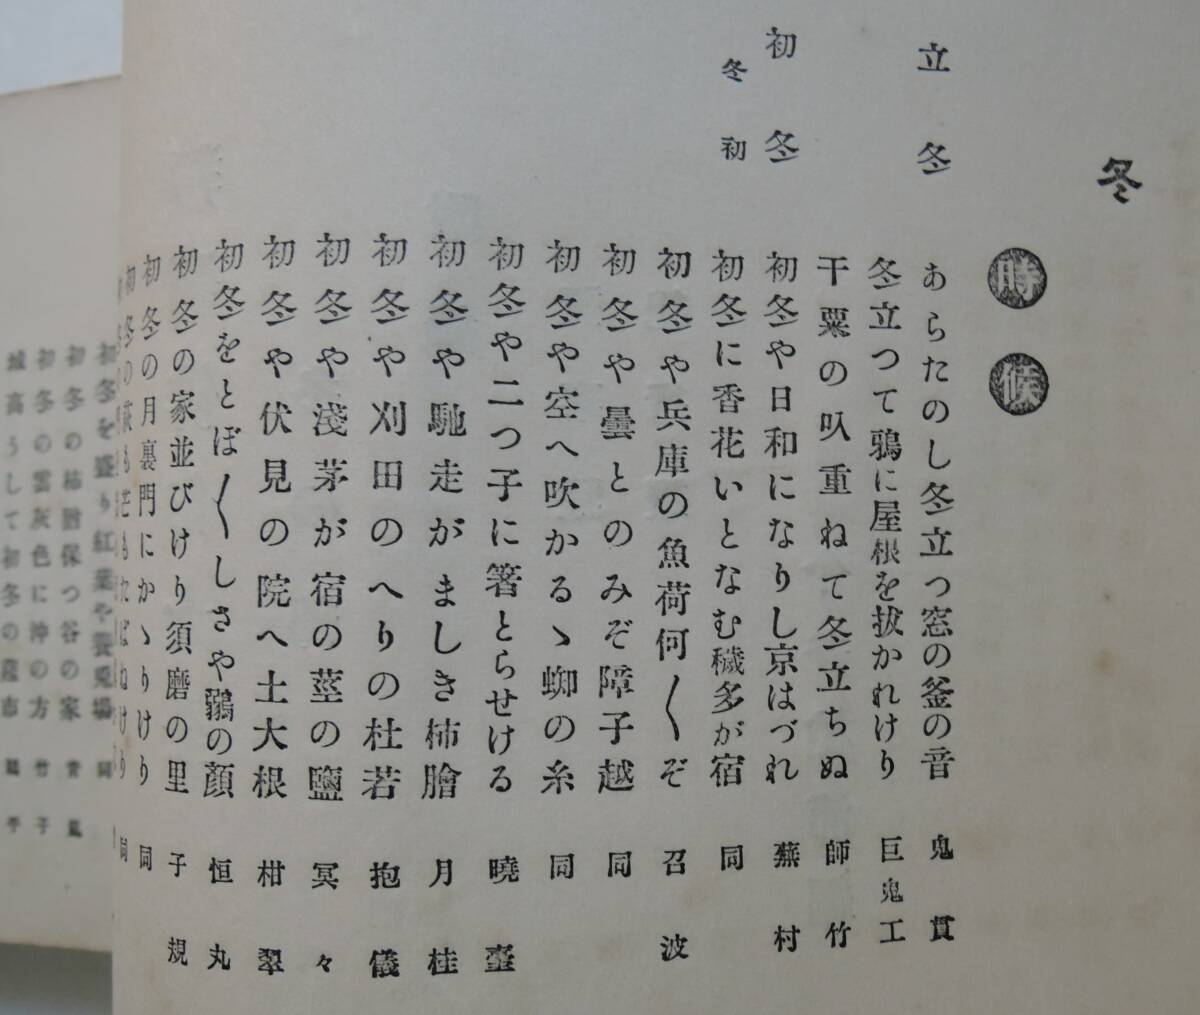 冬
時候
立冬
あらたのし冬立つ窓の釜の音 鬼貫
冬立つて鴉に屋根を拔かれけり 巨鬼工
干粟の叺重ねて冬立ちぬ 師竹
初冬
冬初
初冬や日和になりし京はづれ 蕪村
初冬に香花いとなむ穢多が宿 同
初冬や兵庫の魚荷何〳〵ぞ 召波
初冬や曇とのみぞ障子越 同
初冬や空へ吹かるゝ蜘の糸 同
初冬や二つ子に箸とらせける 曉臺
初冬や馳走がましき柿膾 月桂
初冬や刈田のへりの杜若 抱儀
初冬や淺茅が宿の莖の鹽 冥々
初冬や伏見の院へ土大根 柑翠
初冬をとぼ〳〵しさや鶸の顏 恒丸
初冬の家並びけり須磨の里 子規
初冬の月裏門にかゝりけり 同
初冬の萩も芒もたばねけり 同
初冬を盛り紅葉や養兎場 同
初冬の柿膾保つ谷の家
初冬の雲灰色に沖の方 竹子
城高うして初冬の